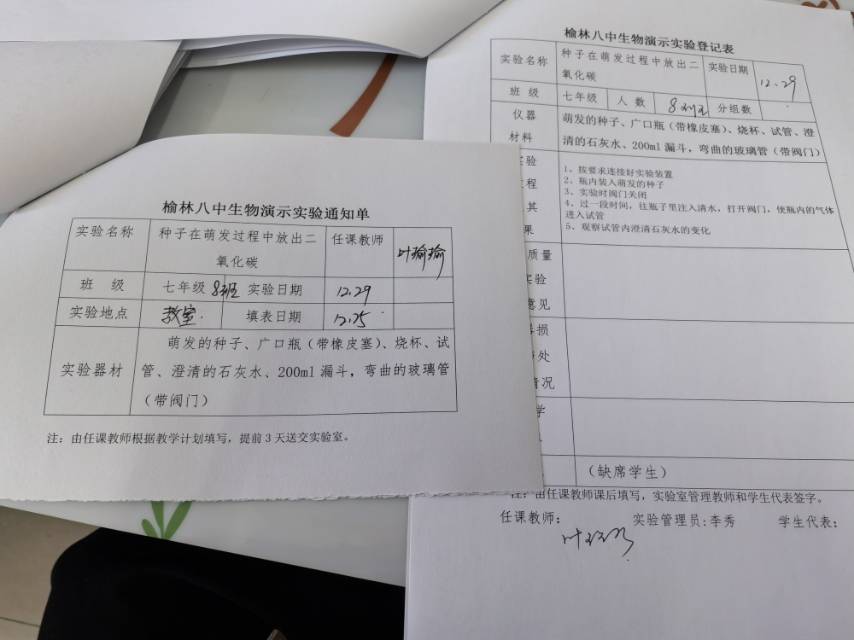 榆林八中生物演示实验通知单
实验名称 种子在萌发过程中放出二氧化碳 任课教师 叶瑜瑜
班 级 七年级 8班 实验日期 12.29
实验地点 教室. 填表日期 12.25
实验器材
萌发的种子、广口瓶(带橡皮塞)、烧杯、试
管、澄清的石灰水、200ml漏斗,弯曲的玻璃管
(带阀门)
注:由任课教师根据教学计划填写,提前3天送交实验室。
榆林八中生物演示实验登记表
实验名称 种子在萌发过程中放出二氧化碳 实验日期 12.29
班 级 七年级 人 数 分组数
仪器
材料
萌发的种子、广口瓶(带橡皮塞)、烧杯、试管、澄
清的石灰水、200ml漏斗,弯曲的玻璃管(带阀门)
验
程
其
果
1、按要求连接好实验装置
2、瓶内装入萌发的种子
3、实验时阀门关闭
4、过一段时间,往瓶子里注入清水,打开阀门,使瓶内的气体
进入试管
5、观察试管内澄清石灰水的变化
质量
实验
意见
损
处
情况
学
(缺席学生)
注:由任课教师课后填写,实验室管理教师和学生代表签字。
任课教师: 实验管理员:李秀 学生代表: